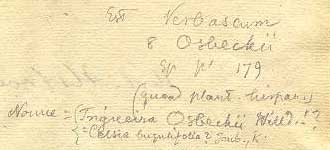 Est Verbascum
8 Osbeckii
Sp. pl. 179
(quoad plant. hispan.)
Nonne = { Triguera Osbeckii Willd.!?
{ = Celsia bugulifolia? Jaub.,